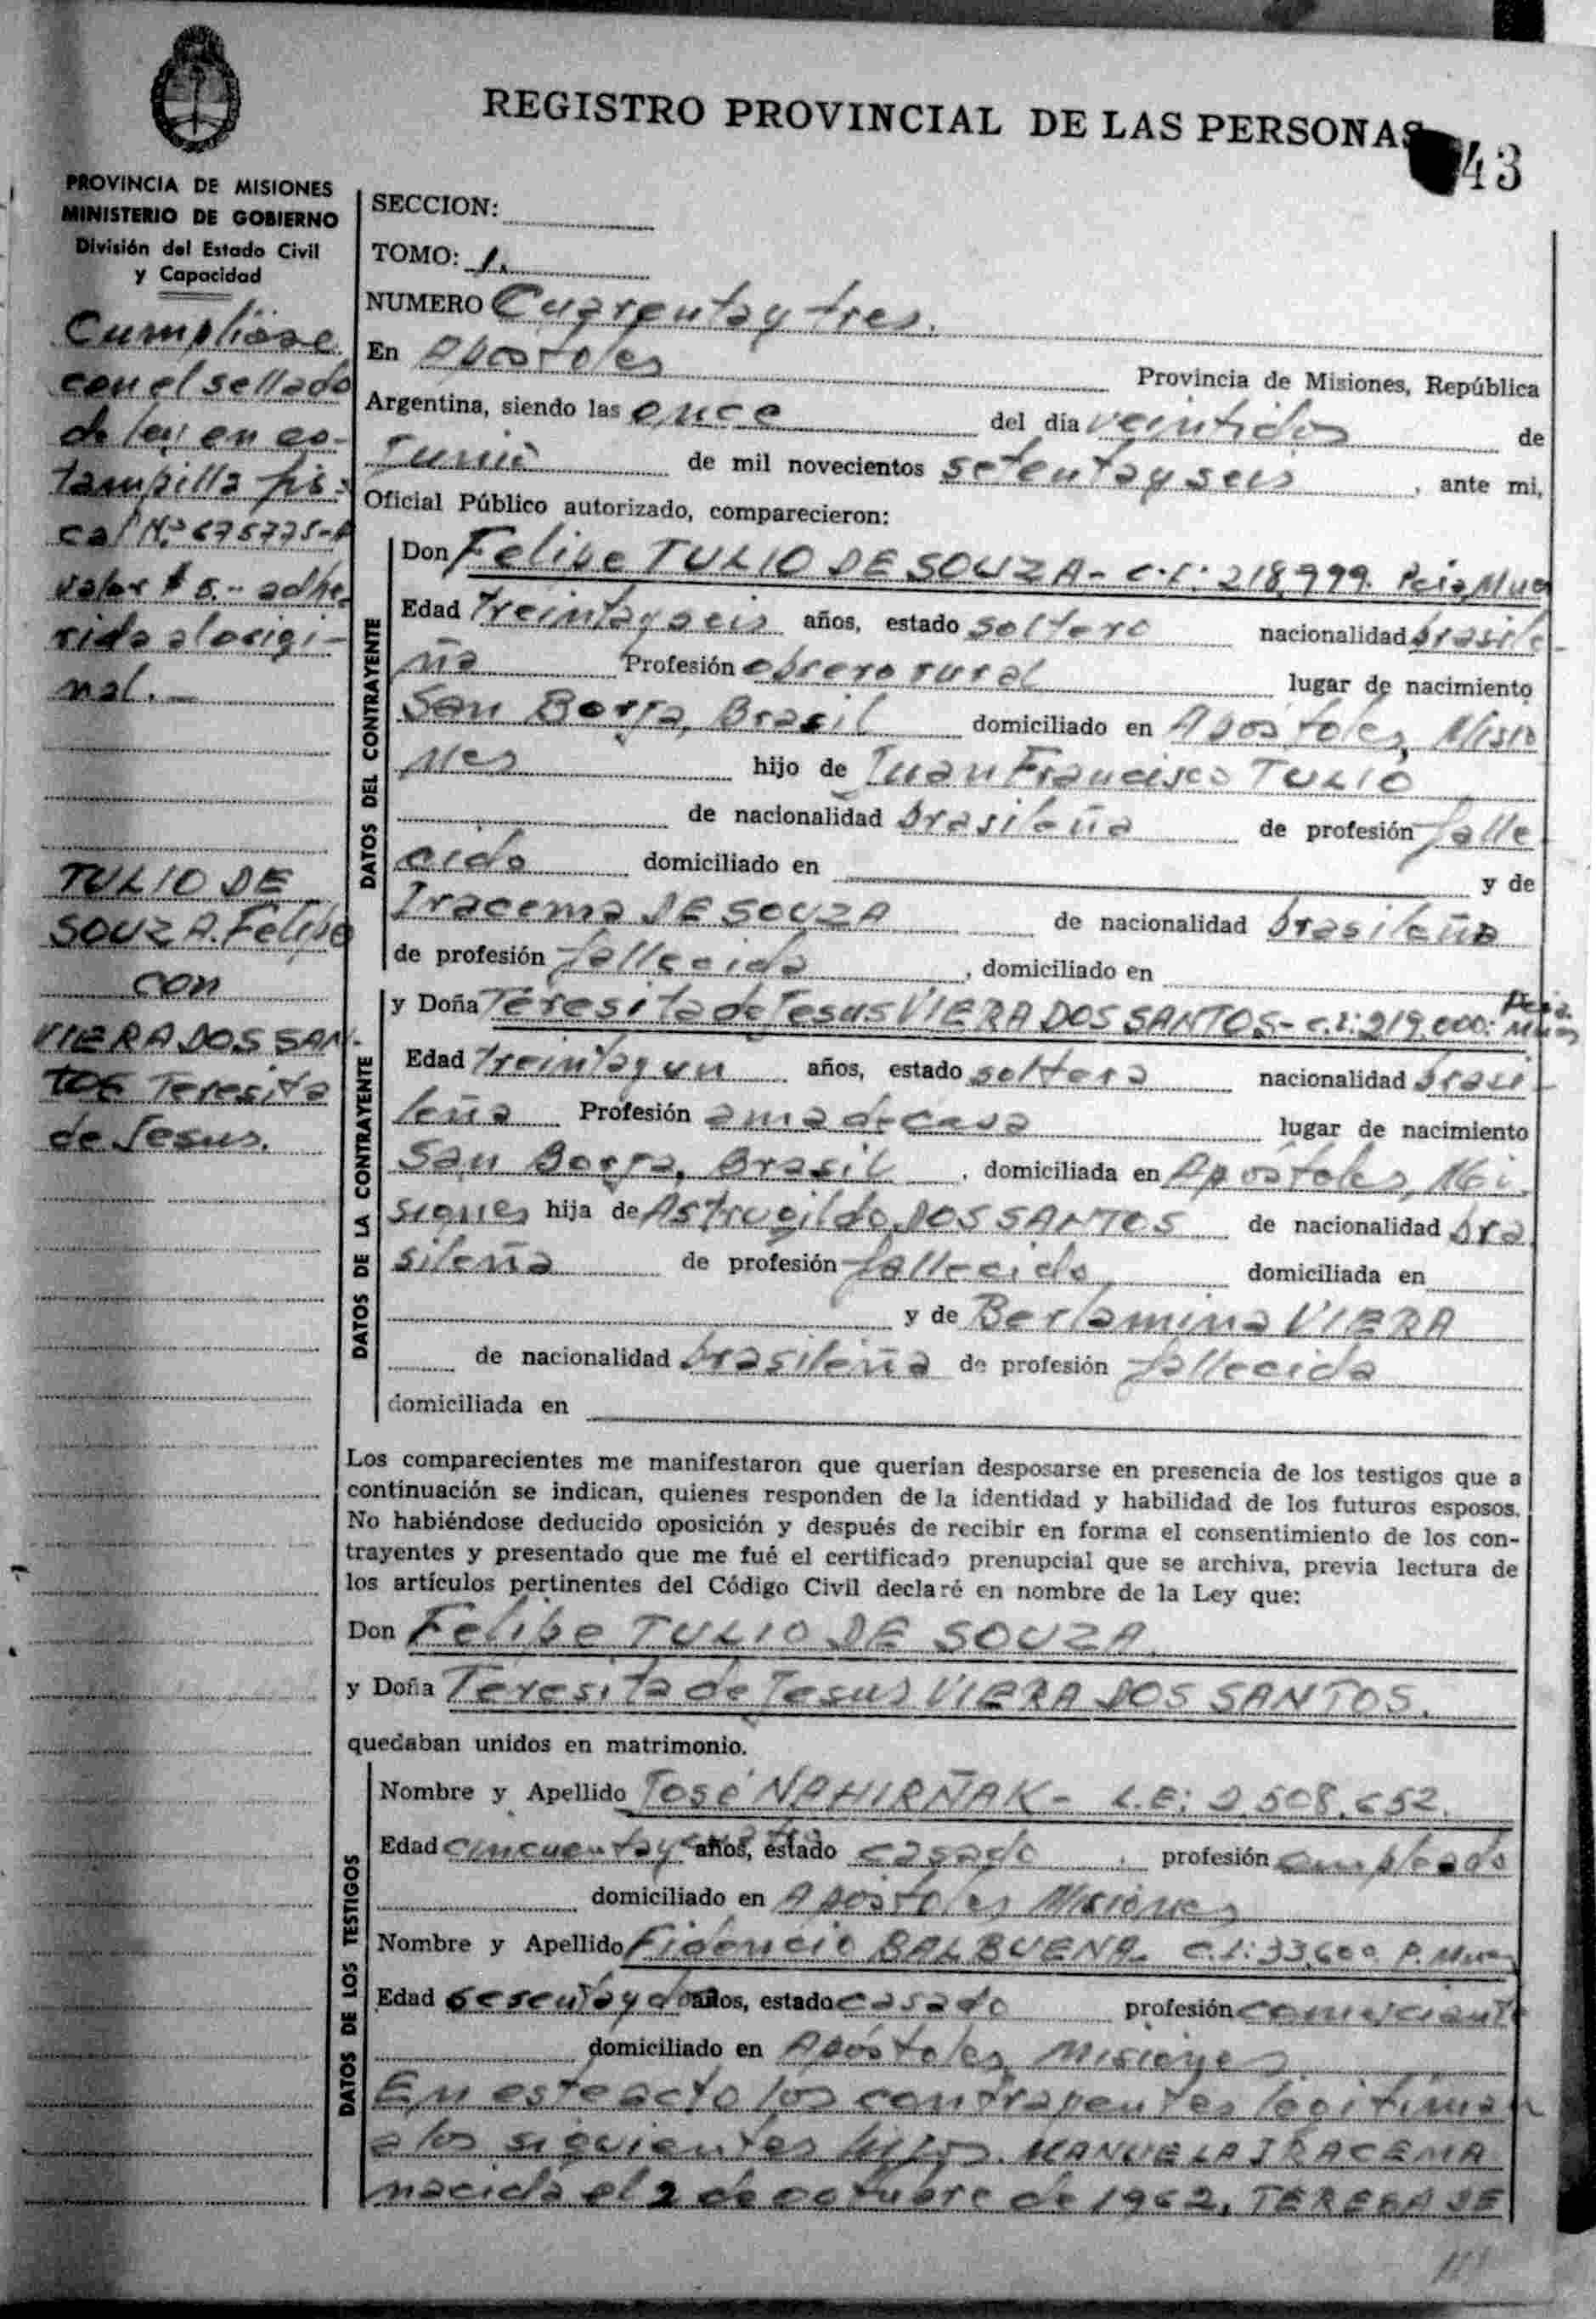 REGISTRO PROVINCIAL DE LAS PERSONAS
43
PROVINCIA DE MISIONES
MINISTERIO DE GOBIERNO
División del Estado Civil
y Capacidad
Cumplióse
con el sellado
de ley en es-
tampilla fis-
cal N.º 675775-A
valor $ 5.- adhe-
rida al origi-
nal.-
TULIO DE
SOUZA. Felipe
con
VIERA DOS SAN-
TOS Teresita
de Jesus.
SECCION:
TOMO: 1.
NUMERO Cuarenta y tres.
En Apostoles Provincia de Misiones, República
Argentina, siendo las once del día veintidos de
Junio de mil novecientos setenta y seis, ante mi,
Oficial Público autorizado, comparecieron:
DATOS DEL CONTRAYENTE
Don Felipe TULIO DE SOUZA - C.I: 218.999. Pcia, Mnes
Edad treinta y seis años, estado soltero nacionalidad brasile-
ña Profesión obrero rural lugar de nacimiento
San Borja, Brasil domiciliado en Apostoles, Misio
nes hijo de Juan Francisco TULIO
de nacionalidad brasileña de profesión falle
cido domiciliado en y de
Iracema DE SOUZA de nacionalidad brasileña
de profesión fallecida, domiciliado en
DATOS DE LA CONTRAYENTE
y Doña Teresita de Jesus VIERA DOS SANTOS - C.I: 219.000: Pcia. Mnes
Edad treinta y un años, estado soltera nacionalidad brasi-
leña Profesión ama de casa lugar de nacimiento
San Borja, Brasil, domiciliada en Apóstoles, Mi-
siones hija de Astrogildo DOS SANTOS de nacionalidad bra
sileña de profesión fallecido domiciliada en
y de Berlamina VIERA
de nacionalidad brasileña de profesión fallecida
domiciliada en
Los comparecientes me manifestaron que querían desposarse en presencia de los testigos que a
continuación se indican, quienes responden de la identidad y habilidad de los futuros esposos.
No habiéndose deducido oposición y después de recibir en forma el consentimiento de los con-
trayentes y presentado que me fué el certificado prenupcial que se archiva, previa lectura de
los artículos pertinentes del Código Civil declaré en nombre de la Ley que:
Don Felipe TULIO DE SOUZA
y Doña Teresita de Jesus VIERA DOS SANTOS.
quedaban unidos en matrimonio.
DATOS DE LOS TESTIGOS
Nombre y Apellido José NAHIRÑAK - L.E: 2.508.652.
Edad cincuenta y años, estado casado profesión empleado
domiciliado en Apóstoles Misiones
Nombre y Apellido Fidencio BALBUENA - C.I: 33.600. P. Mnes
Edad sesenta y dos años, estado casado profesión comerciante
domiciliado en Apóstoles, Misiones
En este acto los contrayentes legitiman
a los siguientes hijos. MANUELA IRACEMA
nacida el 2 de octubre de 1962, TERESA DE